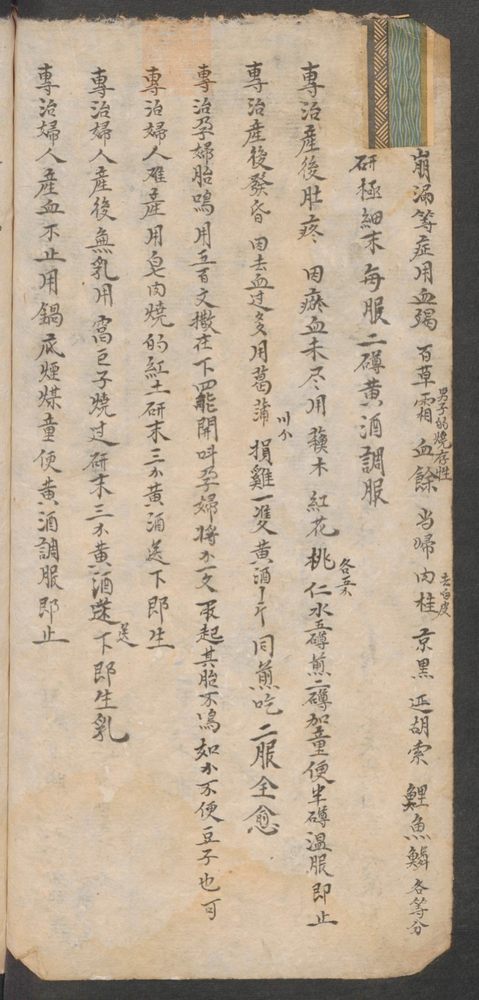 崩漏等症用血竭 百草霜 血餘 男子的燒存性 当歸 肉桂 去白皮 京黑 延胡索 鯉魚鱗 各等分
研極細末每服二䥥黃酒調服
專治產後肚疼 因瘀血未尽用 木 紅花 桃 仁 各五分 水五 煎二 加童便半 溫服即止
專治產後發昏 因去血过多用菖蒲 川 損雞一隻黃酒 斤同煎吃二服全愈
專治孕婦胎鳴用五百文撒在下四 能開叫孕婦將小文取起其胎不鳴如小不便豆子也可
專治婦人难產用皂肉燒的紅土研末三分黃酒送下即生
專治婦人產後無乳用窩巨子燒过研末三分黃酒送下即生乳
專治婦人產血不止用鍋底煙煤童便黃酒調服即止